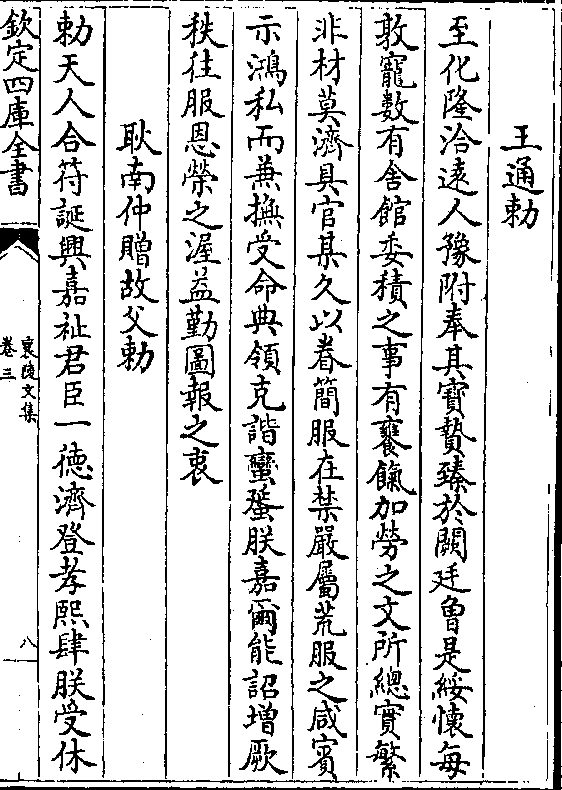 王通勅
至化隆洽逺人豫附奉其寳贄臻於闕廷曾是綏懷每
敦寵數有舍館委積之事有饔餼加勞之文所總實繁
非材莫濟具官某久以眷簡服在禁嚴屬荒服之咸賓
示鴻私而兼撫受命典領克諧蠻蜑朕嘉爾能詔增厥
秩往服恩榮之渥益勤圖報之衷
耿南仲贈故父勅
勅天人合符誕興嘉祉君臣一徳濟登孝熙肆朕受休
欽定四庫全書
襄陵文集
卷三
八